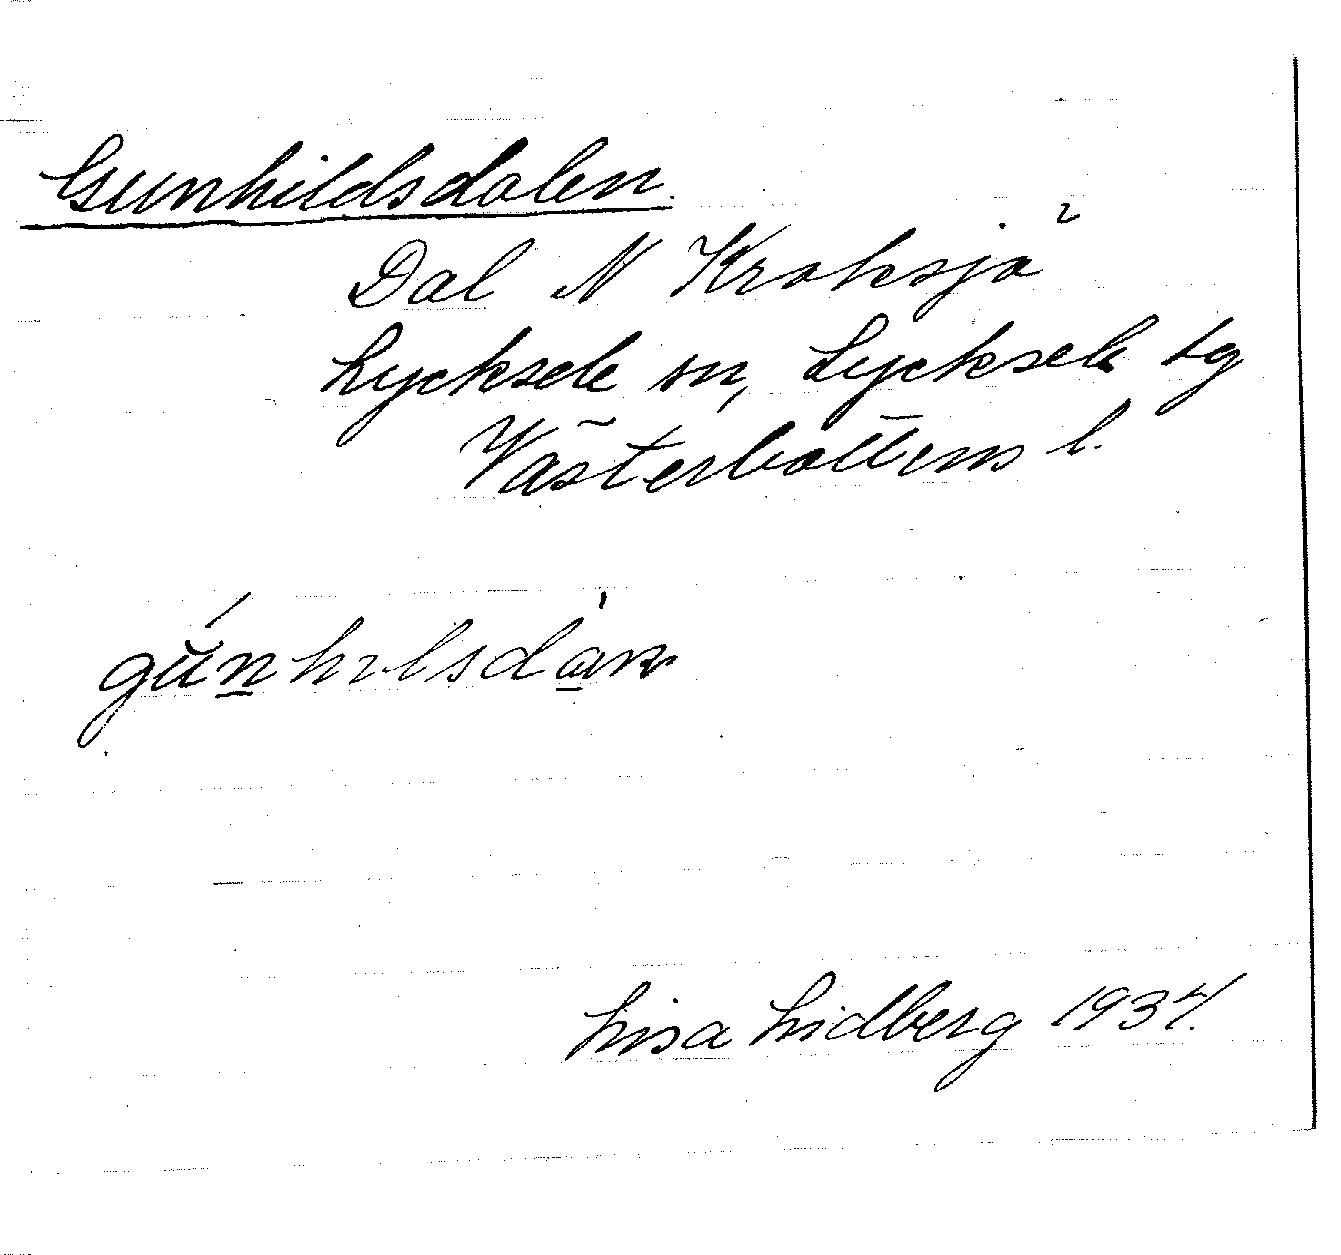 Gunhildsdalen.
Dal N Kroksjö 2
Lycksele sn, Lycksele tg
Västerbottens l.
Lisa Lidberg 1937.